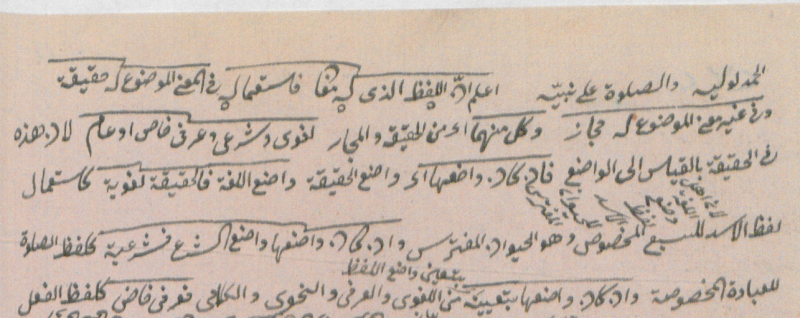 الحمد لوليه والصلوة على نبيّه اعلم انّ اللفظ الذى له معنا فاستعماله فى المعنى الموضوع له حقيقة
وفى غير معنى الموضوع له مجاز وكل منهما اى من الحقيقة والمجاز لغوى وشرعى وعرفى خاص او عام لان هذه
فى الحقيقة بالقياس الى الواضع فان كان واضعها اى واضع الحقيقة واضع اللغة فالحقيقة لغوية كاستعمال
لان اهل اللغة وضع لفظ الاسد للحيوان المفترس
لفظ الاسد للسبع المخصوص وهو الحيوان المفترس وان كان واضعها واضع الشرع فشرعية كلفظ الصلوة
بتعيين واضع اللفظ
للعبادة المخصوصة وان كان واضعها بتعيينه من اللغوى والعرفى والنحوى والكلامى فعرفى خاص كلفظ الفعل